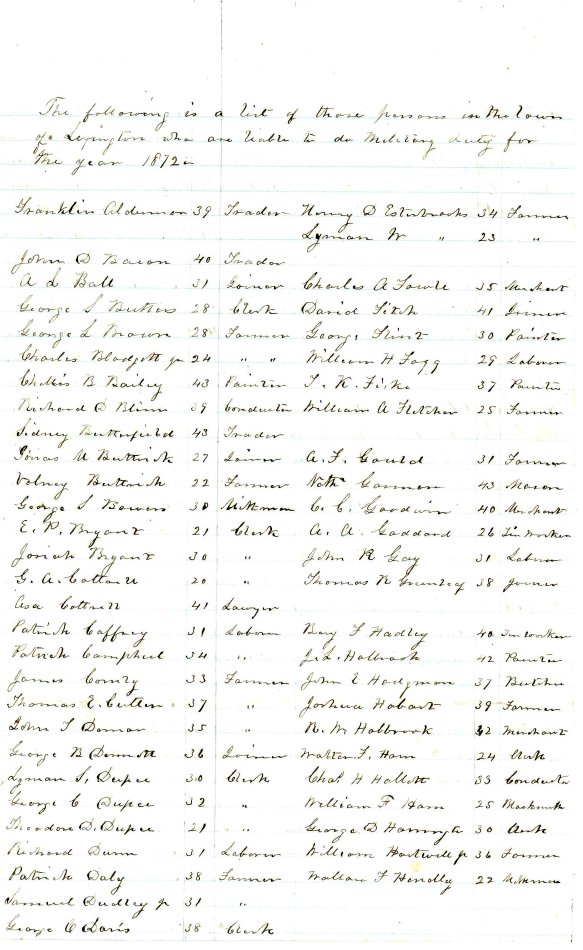 The following is a list of those persons in the town
of Lexington who are liable to do Military duty for
the year 1872
Franklin Alderman 39 Trader Henry D Esterbrooks 34 Farmer
Lyman W " 23 "
John D Bacon 40 Trader
A L Ball 31 Joiner Charles A Fowle 35 Merchant
George S Butters 28 Clerk David Fitch 41 Joiner
George L Brown 28 Farmer George Flint 30 Painter
Charles Blodgett jr 24 " " William H Fogg 29 Laborer
Chellis B Bailey 43 Painter T. K. Fiske 37 Painter
Richard D Blinn 39 Conductor William A Fletcher 25 Farmer
Sidney Butterfield 43 Trader
Jonas M Buttrick 27 Joiner A. F. Gould 31 Farmer
Volney Buttrick 22 Farmer Nath Gammon 43 Mason
George S Bowers 30 Milkman C. C. Goodwin 40 Merchant
E. P. Bryant 21 Clerk A. A. Goddard 26 Tin Worker
Josiah Bryant 30 " John R Gay 31 Laborer
G. A. Cottrell 20 " Thomas R Greenleaf 38 Joiner
Asa Cottrell 41 Lawyer
Patrick Caffrey 31 Laborer Benj F Hadley 40 Tin worker
Patrick Campheel 34 " J. L. Holbrook 42 Painter
James Conry 33 Farmer John E Hodgman 37 Butcher
Thomas E. Cutter 37 " Joshua Hobart 39 Farmer
John T Dornan 35 " R. W. Holbrook 32 Merchant
George B Dermott 36 Joiner Walter F. Ham 24 Clerk
Lyman S. Dupee 30 Clerk Chas H Hallott 33 Conductor
George C Dupee 32 " William F Ham 25 Blacksmith
Theodore D. Dupee 21 " George D 30 Clerk
Richard Dunn 31 Laborer William Hartwell jr 36 Farmer
Patrick Daly 38 Farmer Wallace F Hendley 22 Milkman
Samuel Dudley jr 31 "
George O Davis 38 Clerk